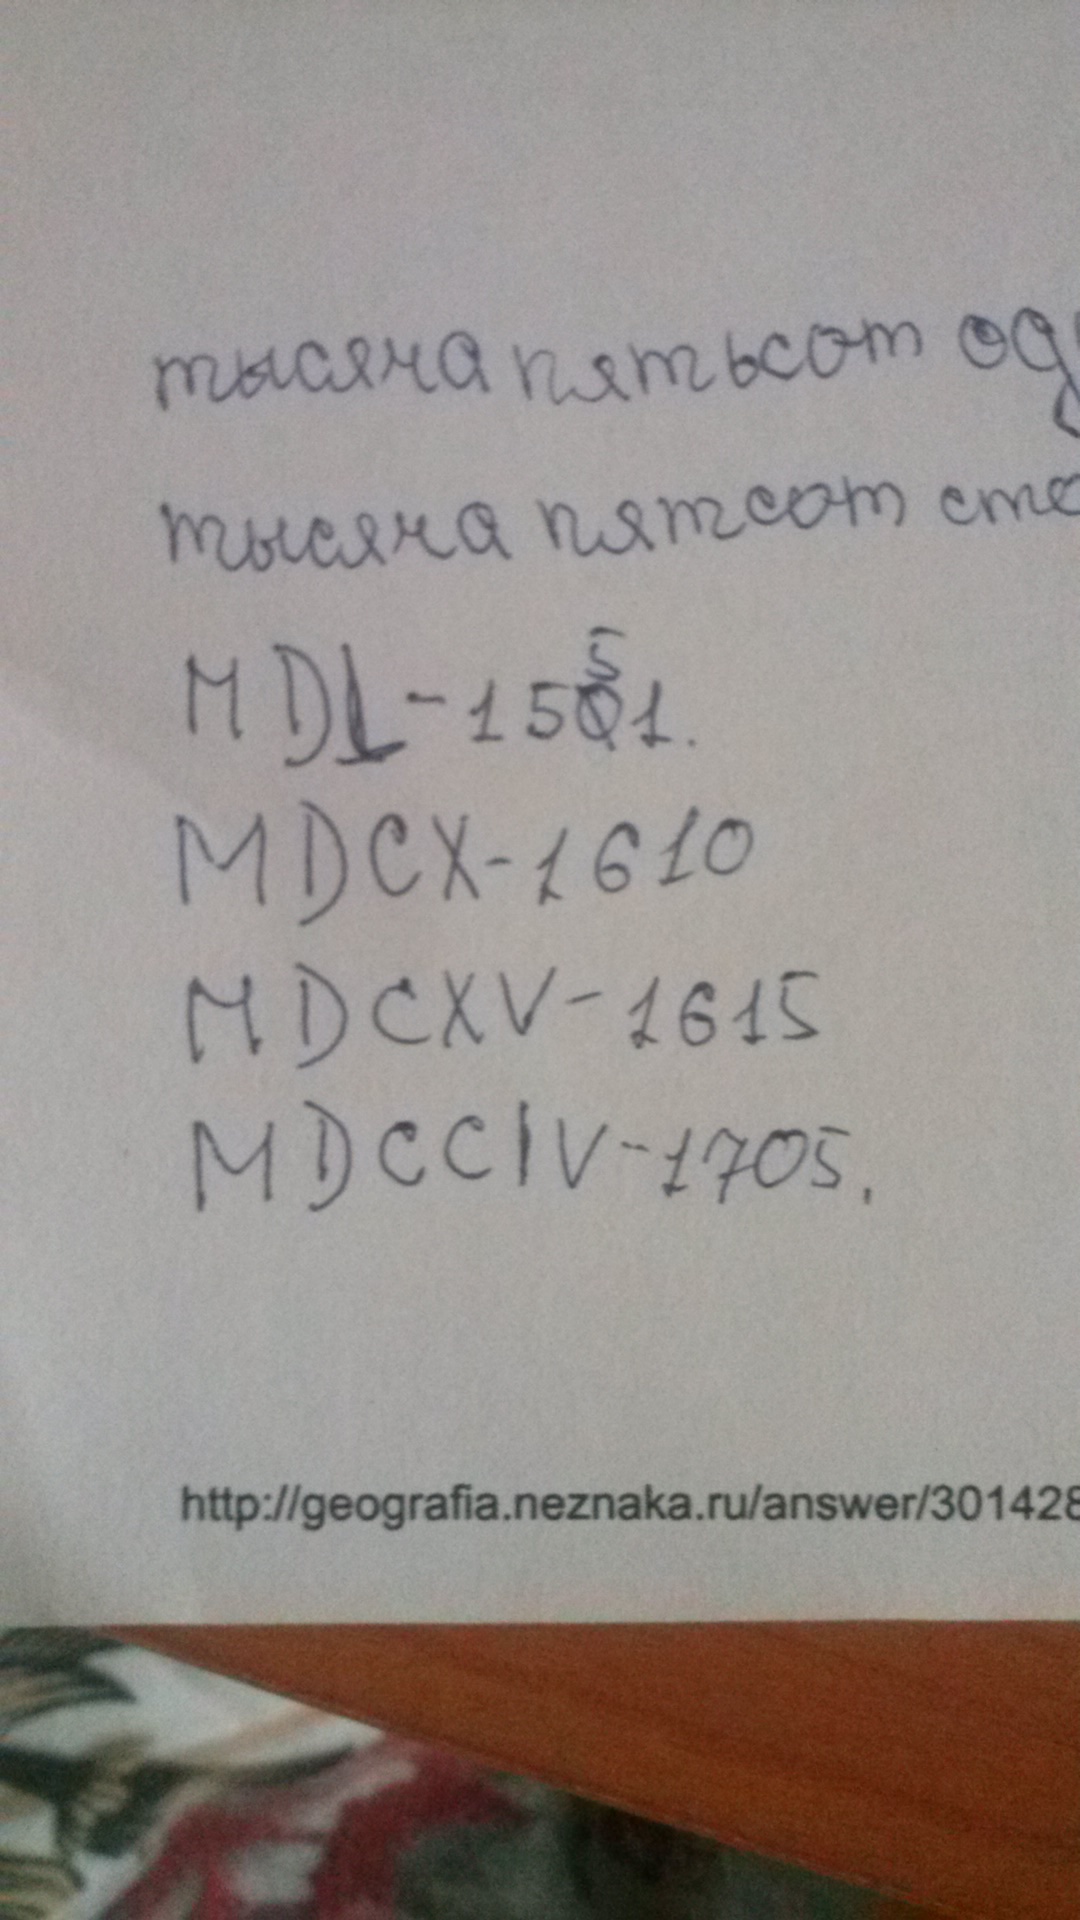 тысяча пятьсот
тысяча пятсот
MDL-1551.
MDCX-1610
MDCXV-1615
MDCCIV-1705.
http://geografia.neznaka.ru/answer/301428